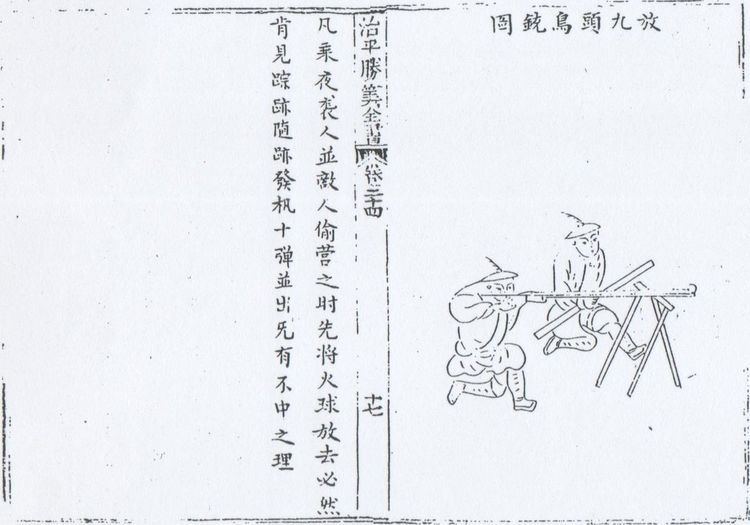 放九頭鳥銃圖
治平勝筭全書
卷二十四
十七
凡乘夜袭人並敵人偷营之时先将火球放去必然
肯見踪跡隨跡發机十弹並出旡有不中之理